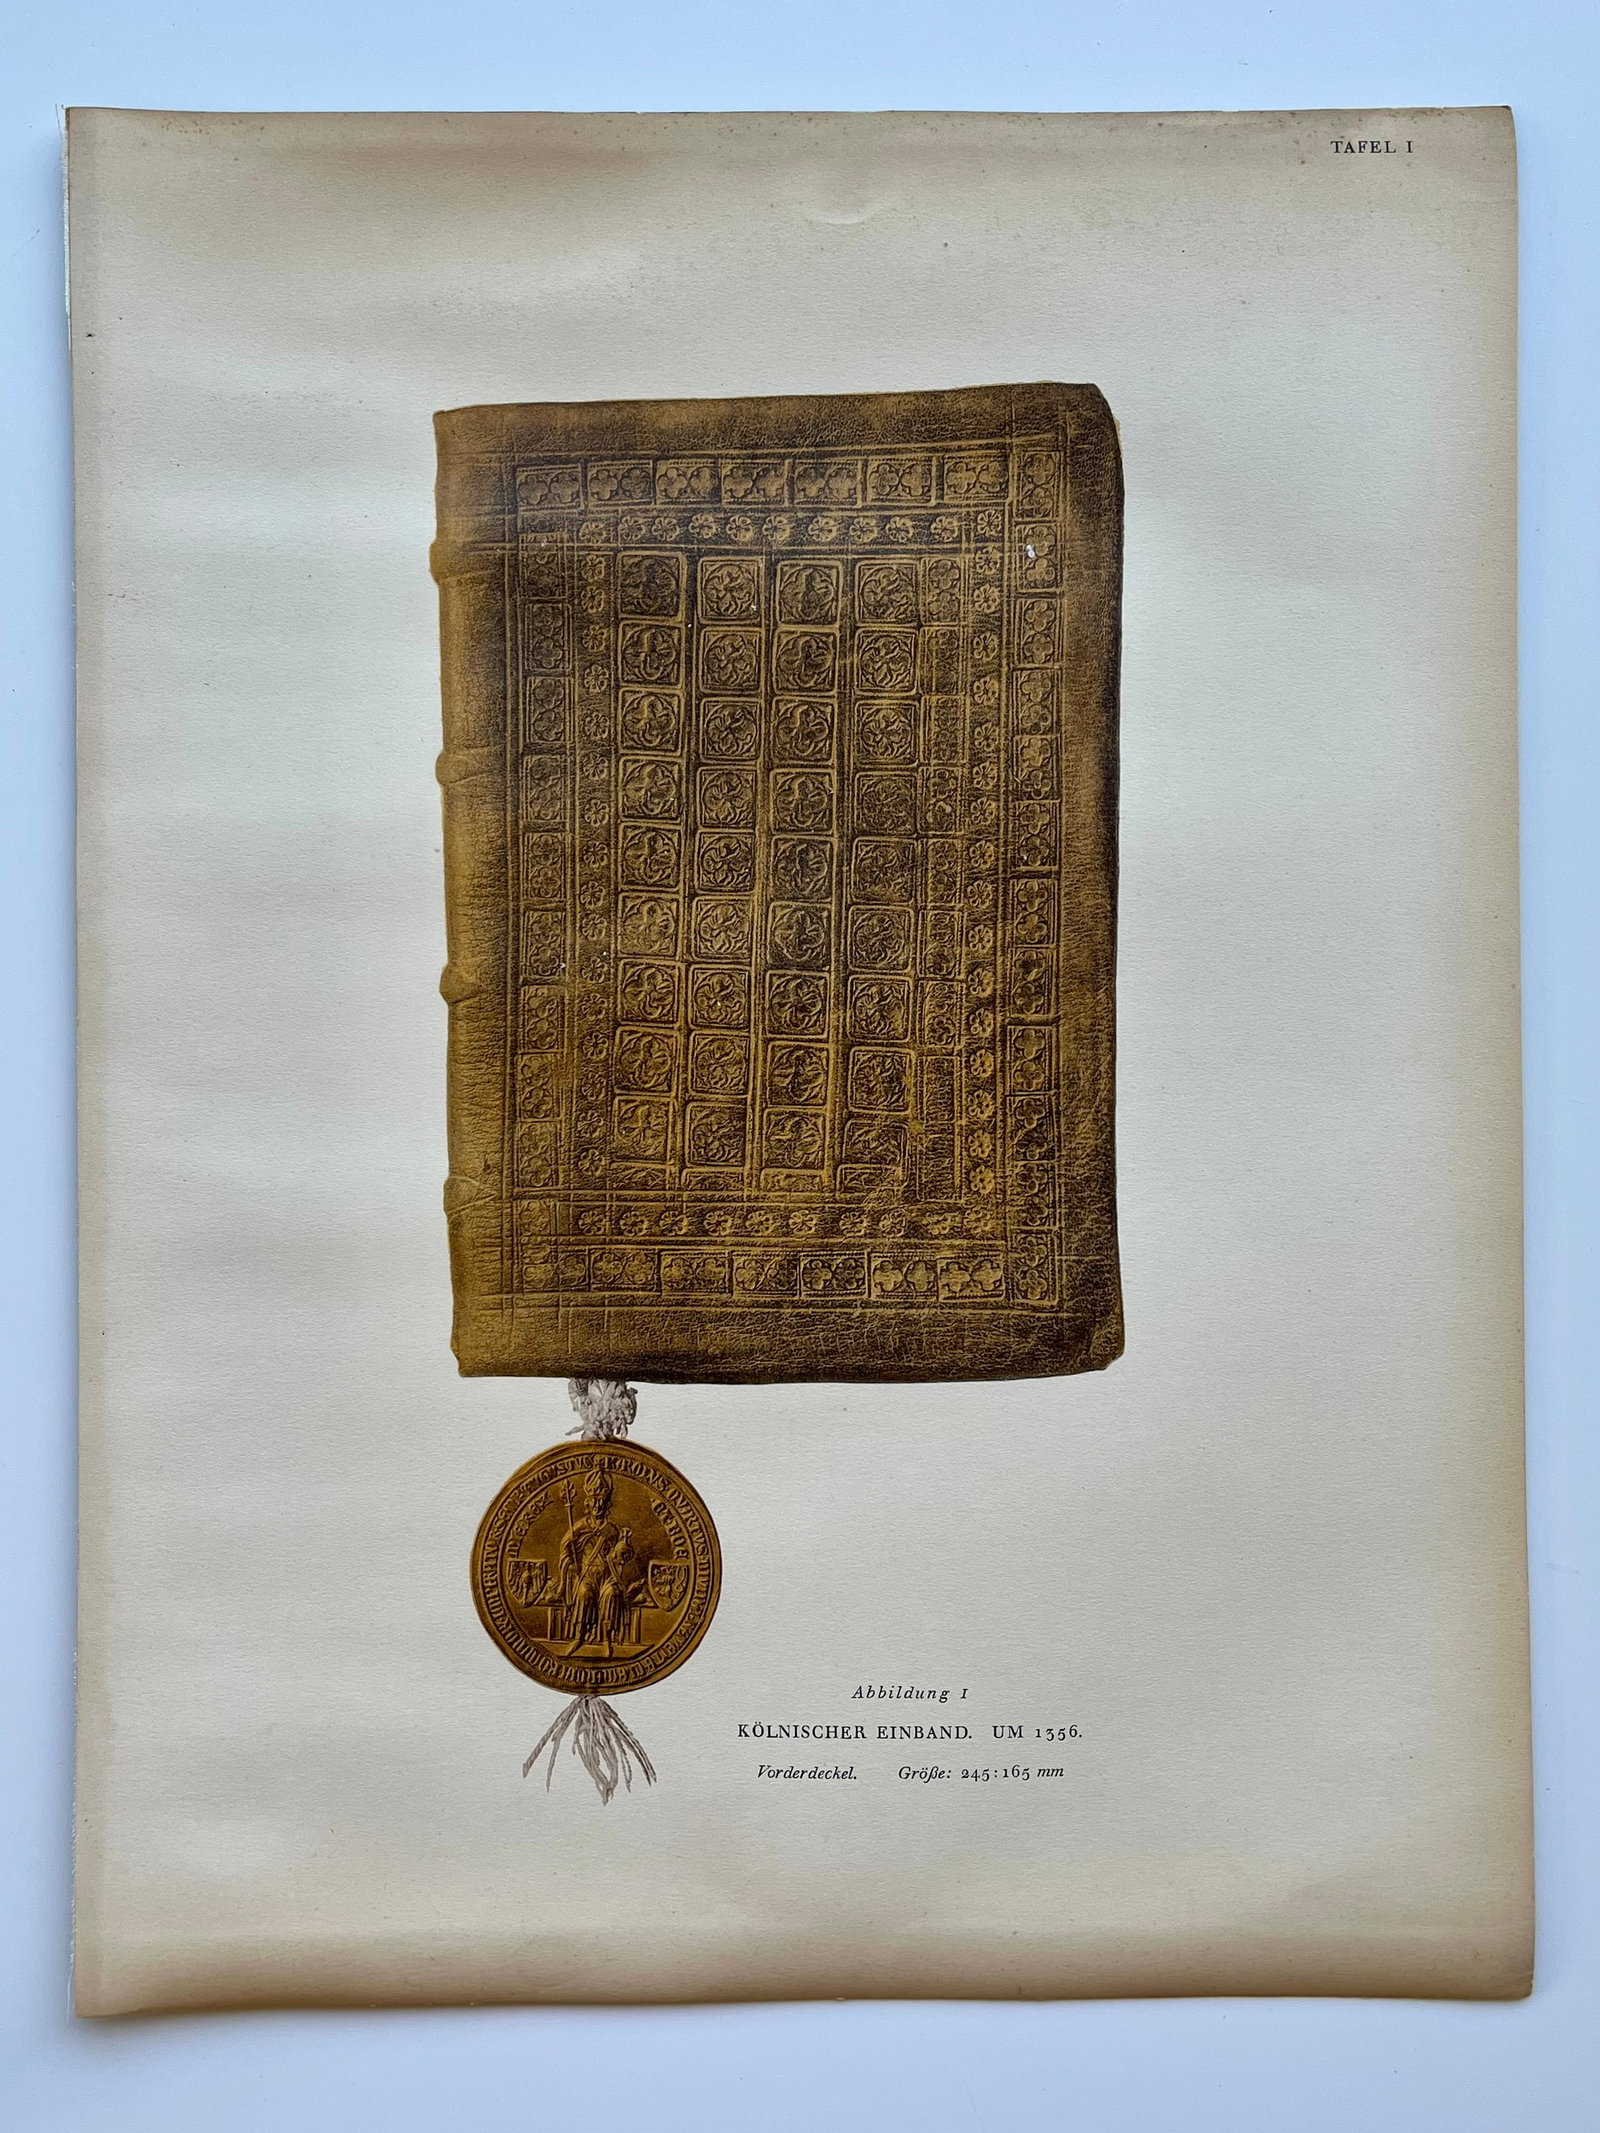 TAFEL I
KAROLVS QVARTVS DIVINA
Abbildung 1
KÖLNISCHER EINBAND. UM 1356.
Vorderdeckel. Größe: 245:165 mm